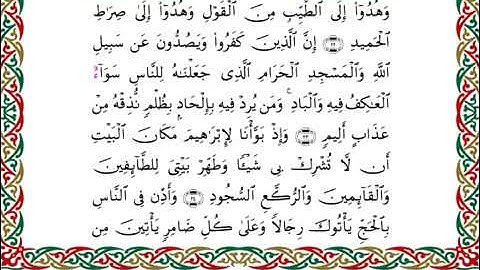 وَهُدُوٓا۟ إِلَى ٱلطَّيِّبِ مِنَ ٱلْقَوْلِ وَهُدُوٓا۟ إِلَىٰ صِرَٰطِ
ٱلْحَمِيدِ ۝٢٤ إِنَّ ٱلَّذِينَ كَفَرُوا۟ وَيَصُدُّونَ عَن سَبِيلِ
ٱللَّهِ وَٱلْمَسْجِدِ ٱلْحَرَامِ ٱلَّذِى جَعَلْنَٰهُ لِلنَّاسِ سَوَآءً
ٱلْعَٰكِفُ فِيهِ وَٱلْبَادِ ۚ وَمَن يُرِدْ فِيهِ بِإِلْحَادٍۭ بِظُلْمٍ نُّذِقْهُ مِنْ
عَذَابٍ أَلِيمٍ ۝٢٥ وَإِذْ بَوَّأْنَا لِإِبْرَٰهِيمَ مَكَانَ ٱلْبَيْتِ
أَن لَّا تُشْرِكْ بِى شَيْـًٔا وَطَهِّرْ بَيْتِىَ لِلطَّآئِفِينَ
وَٱلْقَآئِمِينَ وَٱلرُّكَّعِ ٱلسُّجُودِ ۝٢٦ وَأَذِّن فِى ٱلنَّاسِ
بِٱلْحَجِّ يَأْتُوكَ رِجَالًا وَعَلَىٰ كُلِّ ضَامِرٍ يَأْتِينَ مِن